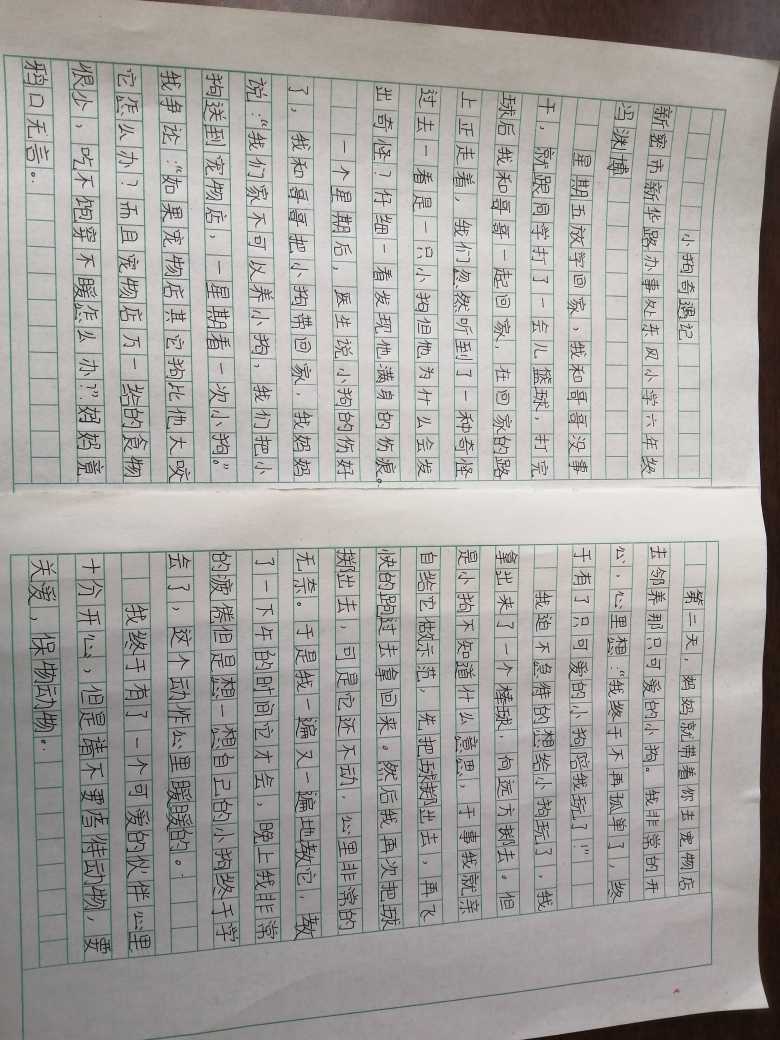 小狗奇遇记
新密市新华路办事处东风小学六年级
冯渊博
星期五放学回家，我和哥哥没事
干，就跟同学打了一会儿篮球，打完
球后我和哥哥一起回家，在回家的路
上正走着，我们忽然听到了一种奇怪
过去一看是一只小狗但他为什么会发
出奇怪？仔细一看发现他满身的伤痕。
一个星期后，医生说小狗的伤好
了，我和哥哥把小狗带回家，我妈妈
说：“我们家不可以养小狗，我们把小
狗送到宠物店，一星期看一次小狗。”
我争论：“如果宠物店其它狗比他大咬
它怎么办？而且宠物店万一给的食物
很少，吃不饱穿不暖怎么办？”妈妈竟
鸦口无言。
第二天，妈妈就带着你去宠物店
去邻养那只可爱的小狗。我非常的开
心，心里想：“我终于不再孤单了，终
于有了只可爱的小狗陪我玩了！”
我迫不急待的想给小狗玩了，我
拿出来了一个棒球，向远方掷去。但
是小狗不知道什么意思，于事我就亲
自给它做示范，先把球掷出去，再飞
快的跑过去拿回来。然后我再次把球
掷出去，可是它还不动，心里非常的
无奈。于是我一遍又一遍地教它，教
了一下午的时间它才会，晚上我非常
的疲倦但是想一想自己的小狗终于学
会了，这个动作心里暖暖的。
我终于有了一个可爱的伙伴心里
十分开心，但是请不要害性动物，要
关爱，保物动物。